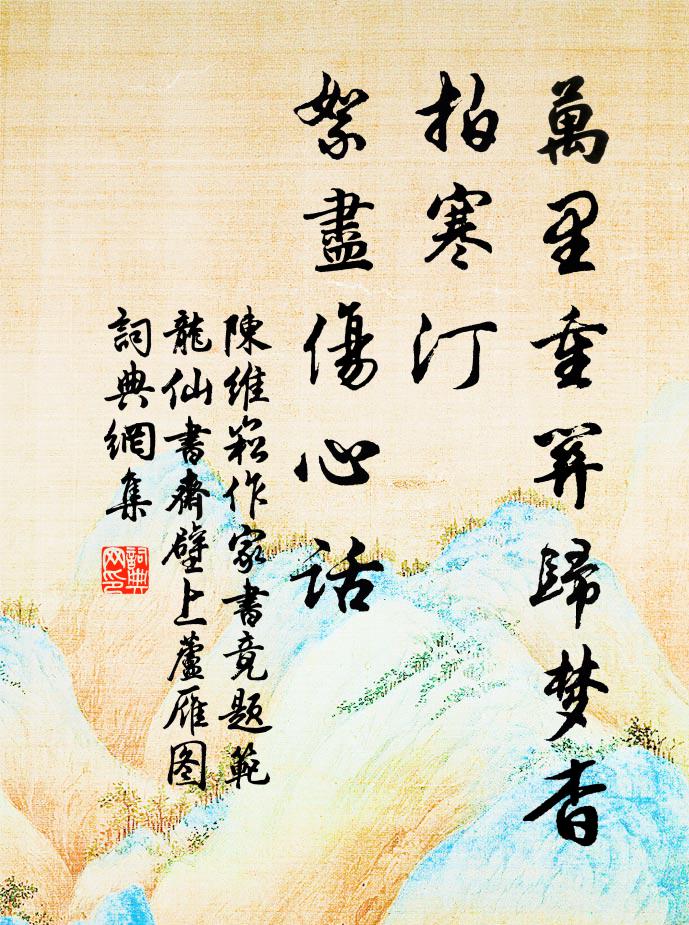 萬里重關歸梦杳
拍寒汀
絮盡傷心話
陳維崧作家書竟題範
龍仙書齋壁上蘆雁图
詞典網集
詞典网印